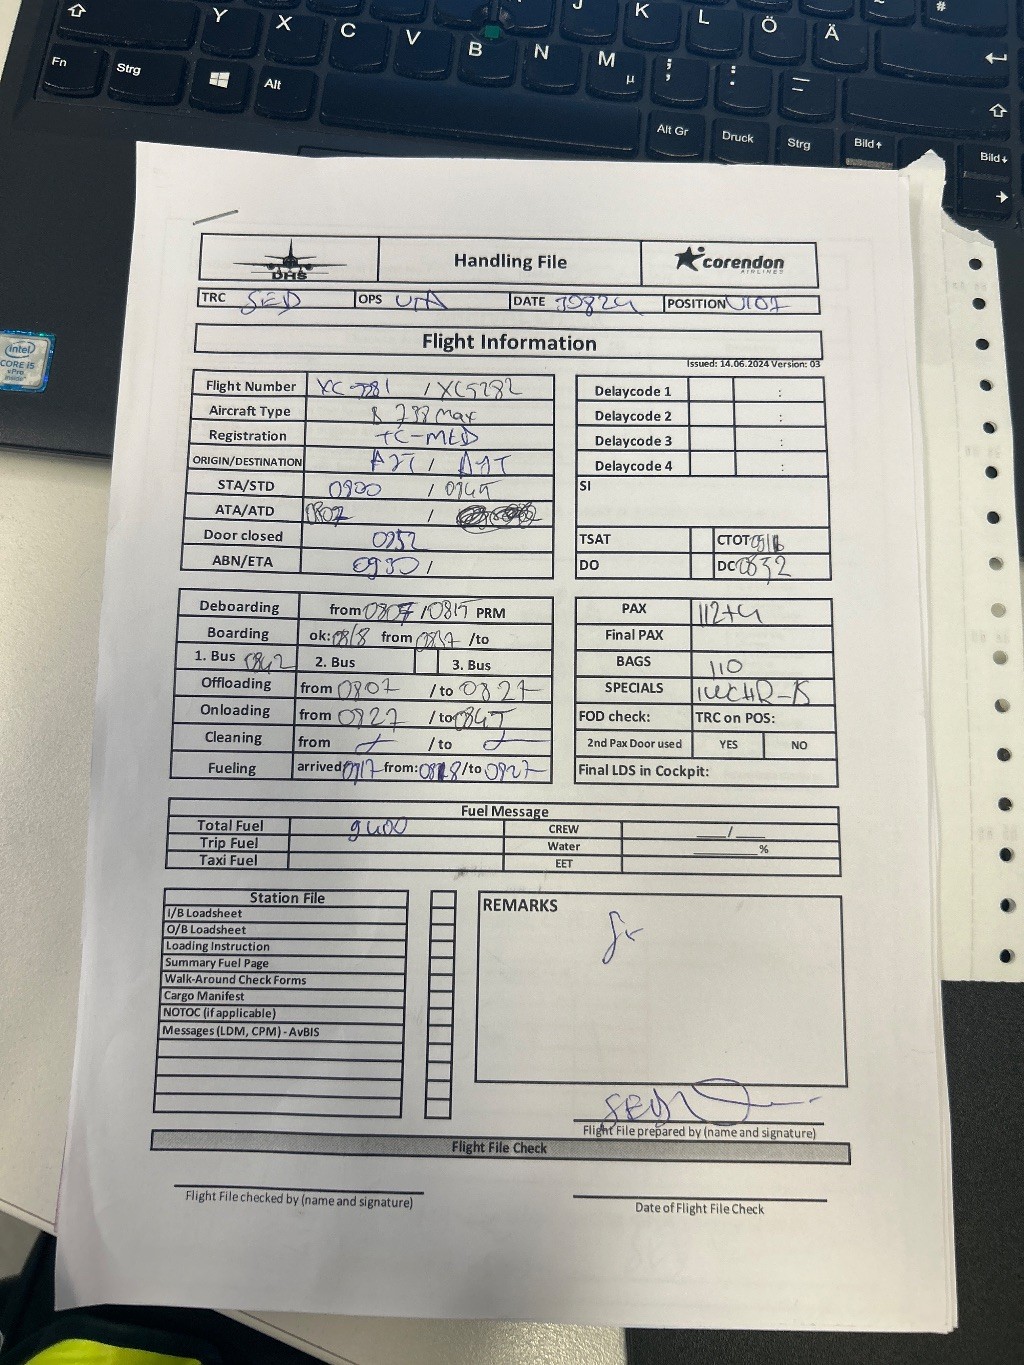 Y X C V B N M J K L Ö Ä #
Fn Strg Alt µ ; , : . _ - Alt Gr Druck Strg Bild↑ Bild↓
intel
CORE i5
vPro
inside
DHS Handling File corendon
AIRLINES
TRC SED OPS DATE POSITION V107
Flight Information
Issued: 14.06.2024 Version: 03
Flight Number / XC5282 Delaycode 1 :
Aircraft Type B 738 Max Delaycode 2 :
Registration TC-MKD Delaycode 3 :
ORIGIN/DESTINATION AYT / AYT Delaycode 4 :
STA/STD 0900 / 0945 SI
ATA/ATD /
Door closed 0952 TSAT CTOT
ABN/ETA 0930 / DO DC 0832
Deboarding from 0807 / 0815 PRM PAX 112+4
Boarding ok: 0818 from 0837 /to Final PAX
1. Bus 0842 2. Bus 3. Bus BAGS 110
Offloading from 0807 /to 0827 SPECIALS 1WCHR-15
Onloading from 0827 /to 0845 FOD check: TRC on POS:
Cleaning from /to 2nd Pax Door used YES NO
Fueling arrived from: /to Final LDS in Cockpit:
Fuel Message
Total Fuel 9400 CREW ____/____
Trip Fuel Water ________%
Taxi Fuel EET
Station File REMARKS
I/B Loadsheet
O/B Loadsheet
Loading Instruction
Summary Fuel Page
Walk-Around Check Forms
Cargo Manifest
NOTOC (if applicable)
Messages (LDM, CPM) - AvBIS
SED
Flight File prepared by (name and signature)
Flight File Check
Flight File checked by (name and signature) Date of Flight File Check